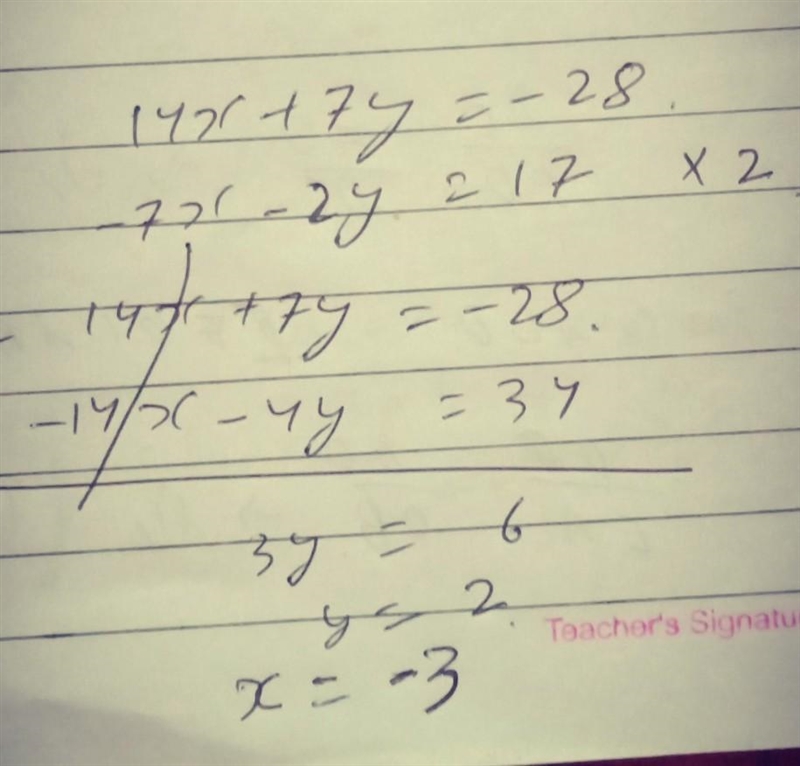 14x + 7y = -28.
-7x - 2y = 17 × 2
14x + 7y = -28.
-14x - 4y = 34
3y = 6
y = 2.
Teacher's Signatu
x = -3